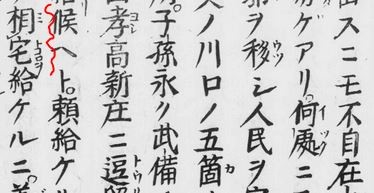 出スニモ不自在
ゲアリ。何處ニ
ヲ移シ人民ヲ
ノ川口ノ五箇
。子孫永ク武備
孝高新庄ニ逗
候ヘト。頼給ケ
相宅給ケルニ。